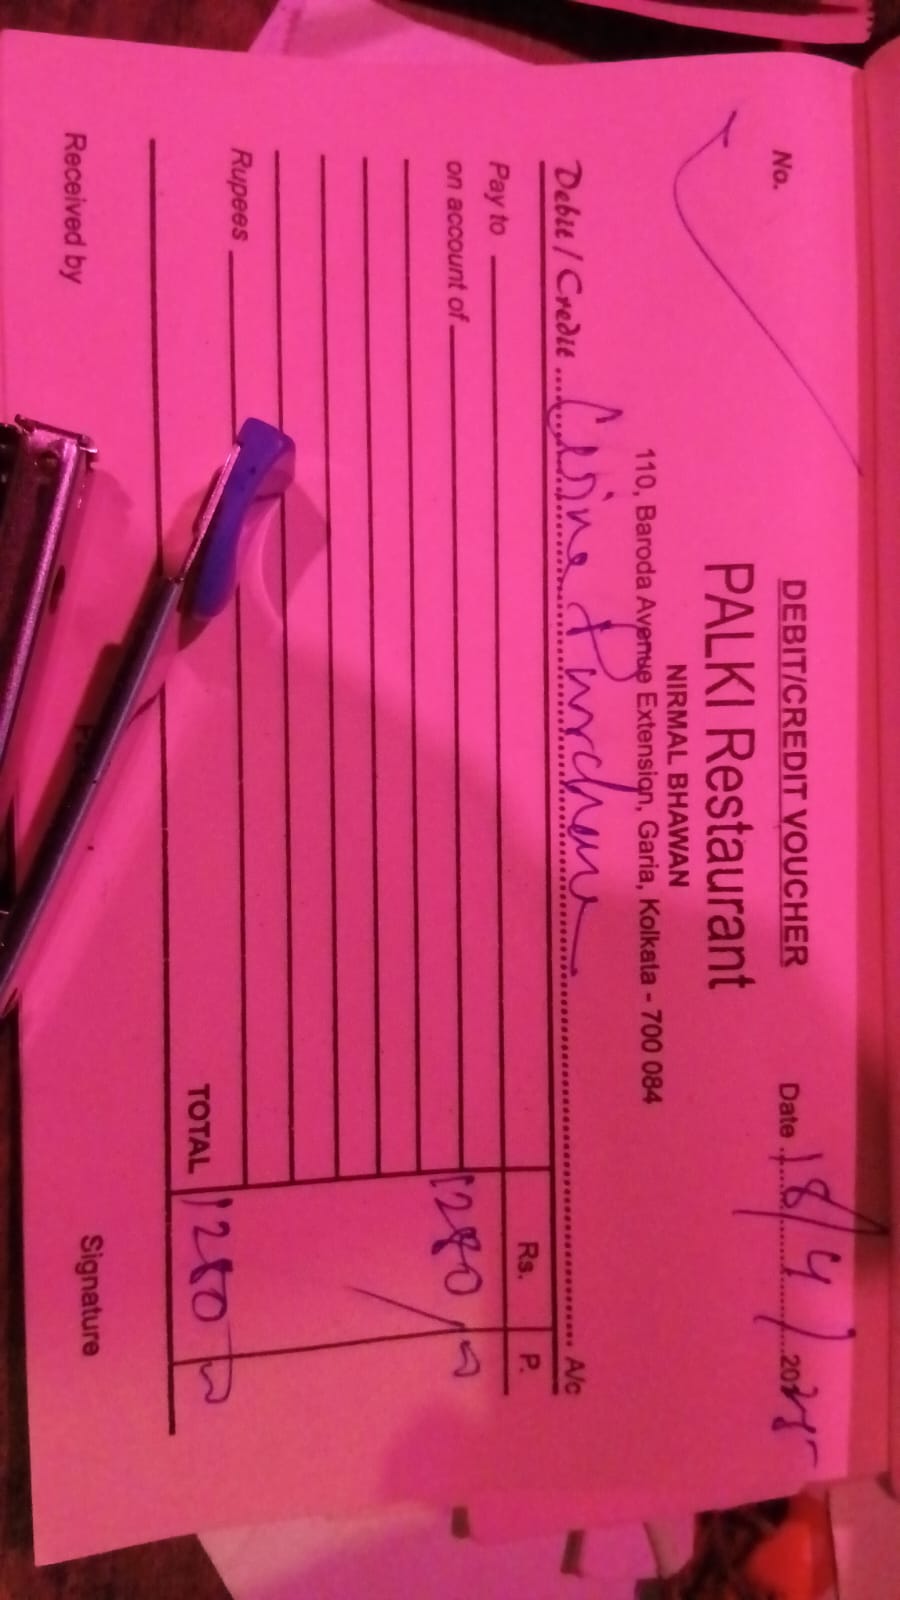 DEBIT/CREDIT VOUCHER
No.
Date 18/4/2025
PALKI Restaurant
NIRMAL BHAWAN
110, Baroda Avenue Extension, Garia, Kolkata - 700 084
Debit / Credit ........ Purchase ........ A/c
Pay to
Rs. P.
on account of
1280/00
Rupees
TOTAL 1280 00
Received by
Signature